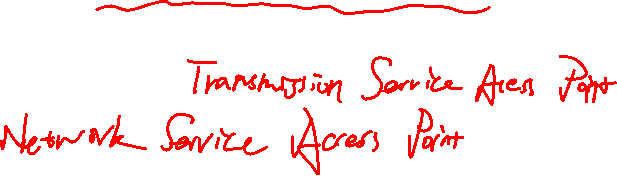 Transmission Service Access Point
Network Service Access Point